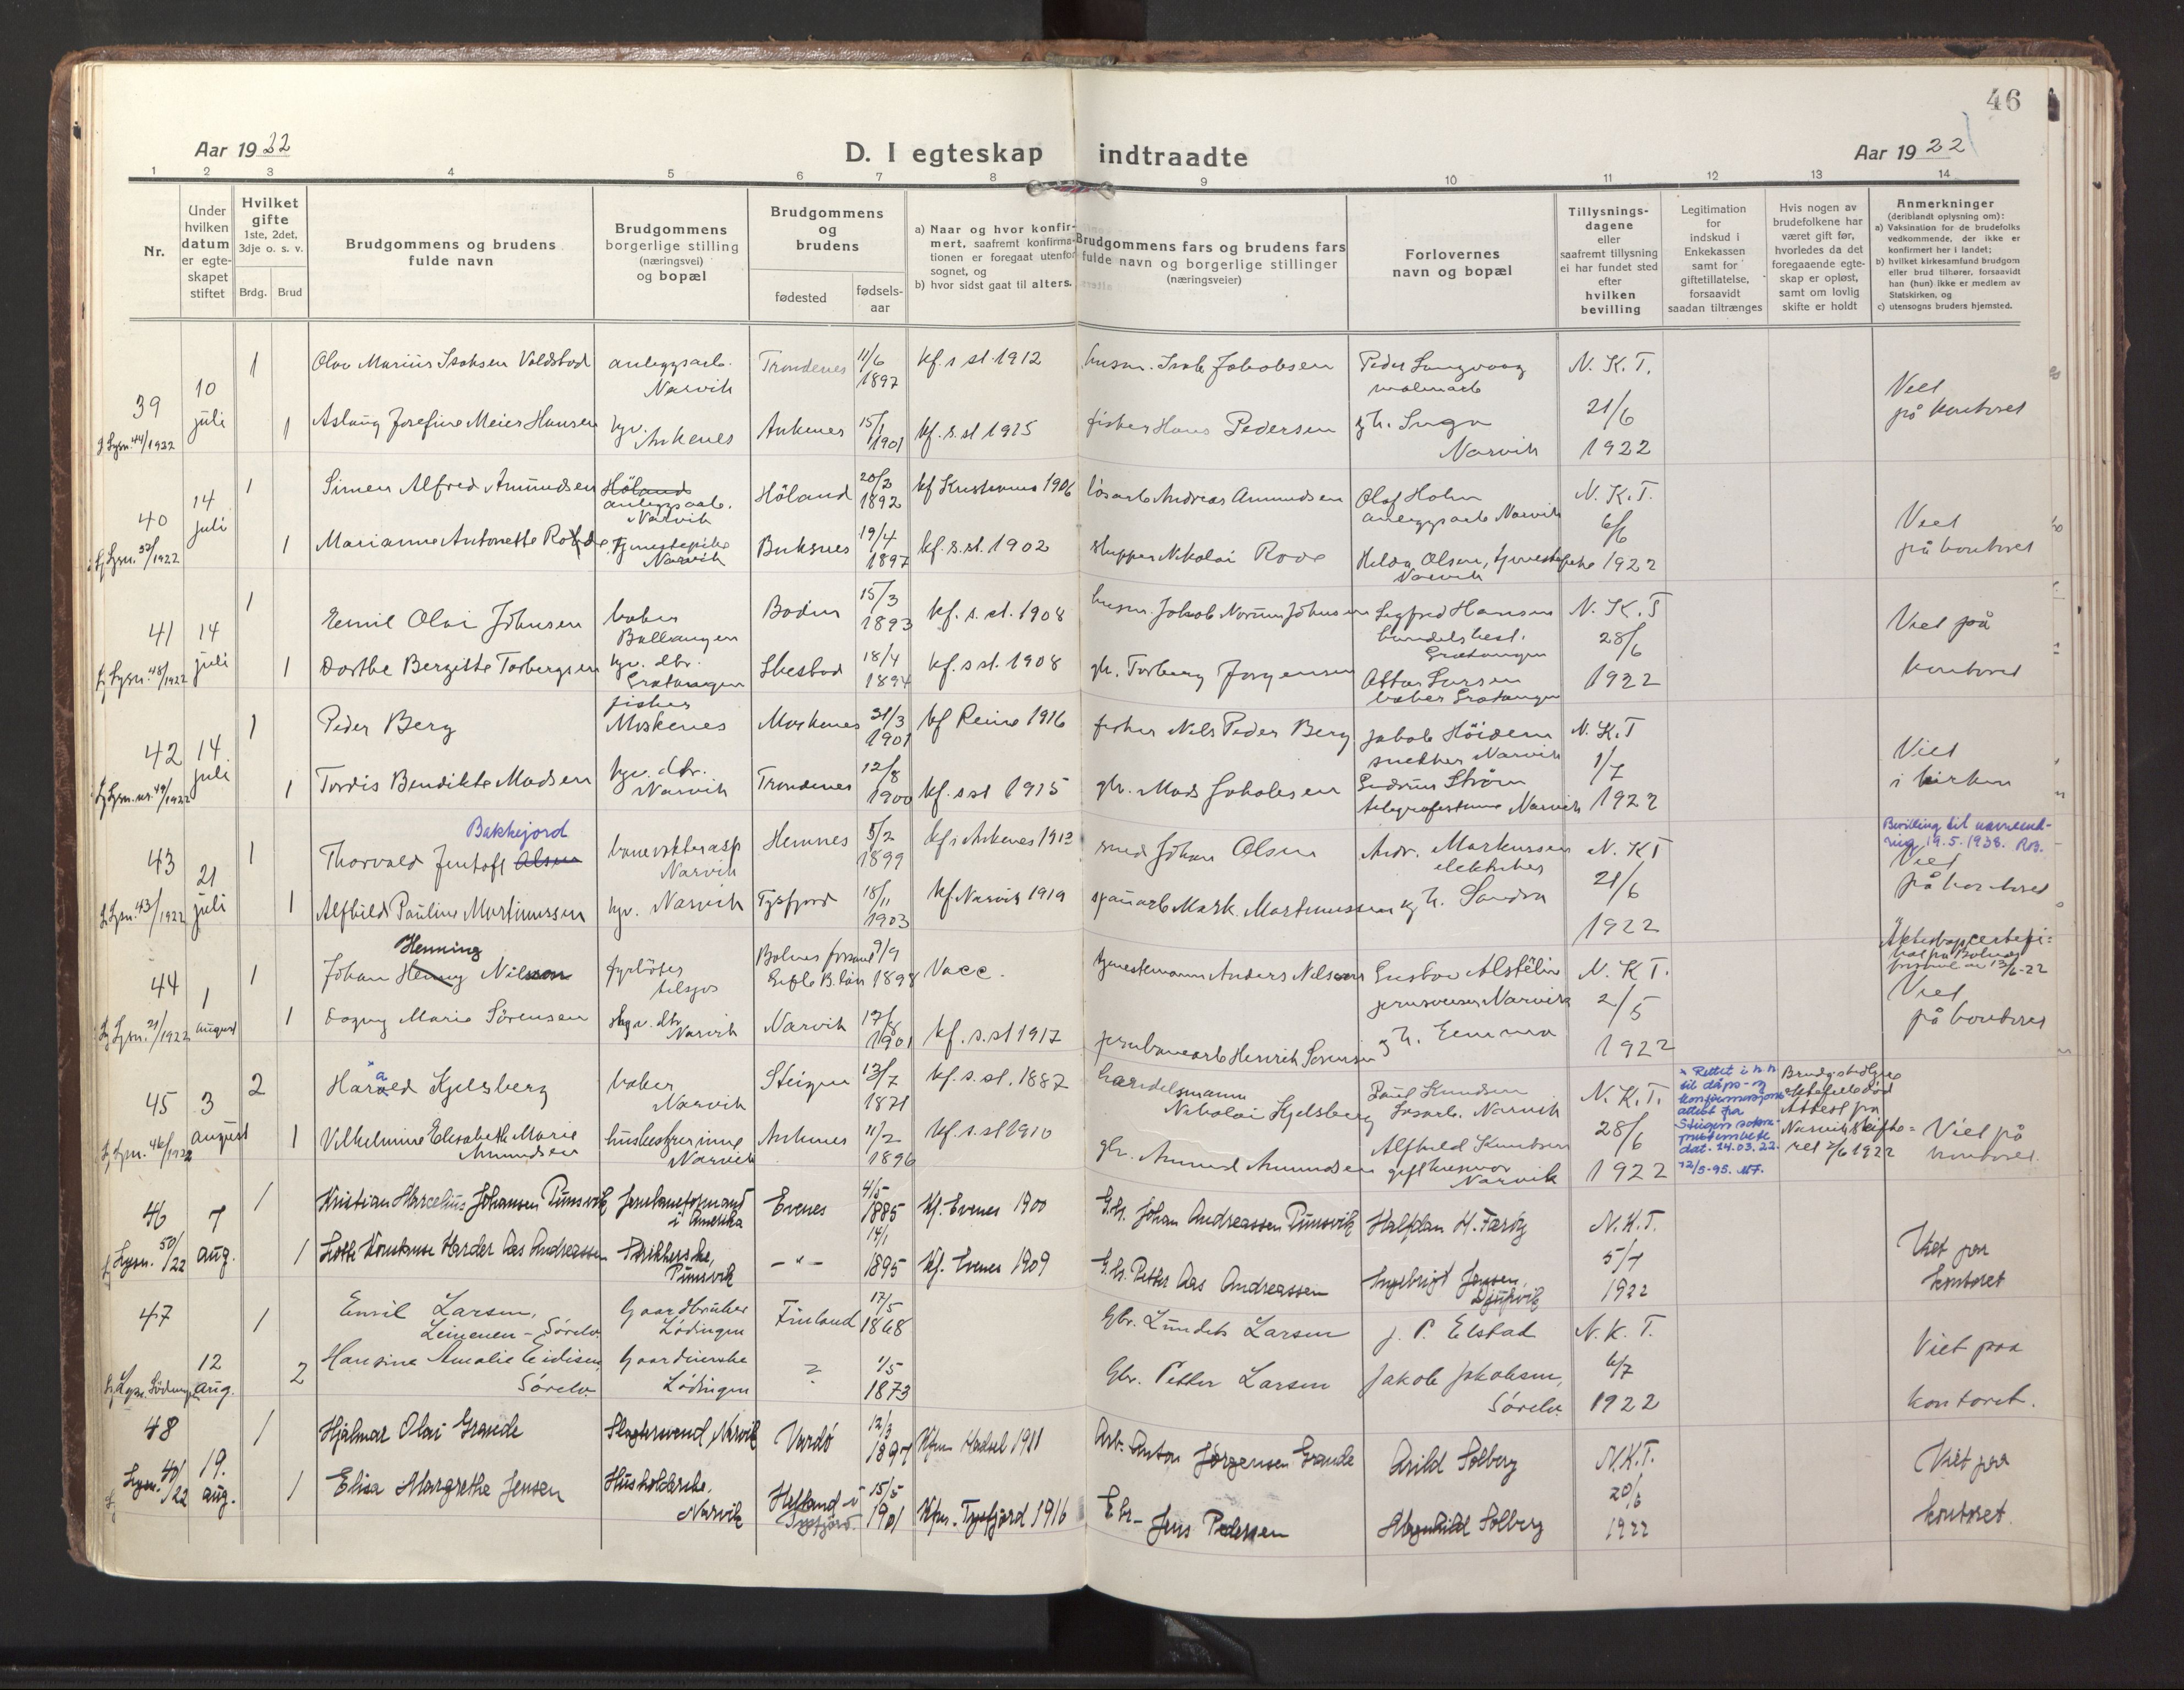 46
Aar 1922
D. I egteskap indtraadte
Aar 1922
1 2 3 4 5 6 7 8 9 10 11 12 13 14
Nr.
Under
hvilken
datum
er egte-
skapet
stiftet
Hvilket
gifte
1ste, 2det,
3dje o. s. v.
Brdg. Brud
Brudgommens og brudens
fulde navn
Brudgommens
borgerlige stilling
(næringsvei)
og bopæl
Brudgommens
og
brudens
fødested
fødsels-
aar
a) Naar og hvor konfir-
mert, saafremt konfirma-
tionen er foregaat utenfor
sognet, og
b) hvor sidst gaat til alters.
Brudgommens fars og brudens fars
fulde navn og borgerlige stillinger
(næringsveier)
Forlovernes
navn og bopæl
Tillysnings-
dagene
eller
saafremt tillysning
ei har fundet sted
efter
hvilken
bevilling
Legitimation
for
indskud i
Enkekassen
samt for
giftetillatelse,
forsaavidt
saadan tiltrænges
Hvis nogen av
brudefolkene har
været gift før,
hvorledes da det
foregaaende egte-
skap er opløst,
samt om lovlig
skifte er holdt
Anmerkninger
(deriblandt oplysning om):
a) Vaksination for de brudefolks
vedkommende, der ikke er
konfirmert her i landet;
b) hvilket kirkesamfund brudgom
eller brud tilhører, forsaavidt
han (hun) ikke er medlem av
Statskirken, og
c) utensogns bruders hjemsted.
39
Lysn. 44/1922
10
juli
1
Olav Marius Isaksen Voldstad
anleggsarb.
Narvik
Trondenes
11/6
1897
kf. s. st 1912
husm. Isak Jakobsen
Peder Langvaag
malmarb
N. K. T.
1
Aslaug Josefine Meier Hansen
hjv.
Ankenes
Ankenes
15/1
1901
kf. s. st 1915
fisker Hans Pedersen
Narvik
21/6
1922
Viet
på kontoret
40
Lysn. 37/1922
14
juli
1
Simen Alfred Amundsen
Hølands
anleggsarb.
Narvik
Høland
20/3
1892
kf Kristiania 1906
løsarb Andreas Amundsen
Olaf Holm
anleggsarb Narvik
N. K. T.
1
Marianne Antonette Rode
Tjenestepike
Narvik
Buksnes
19/4
1897
kf. s. st. 1902
skipper Nikolai Rode
Helda Olsen, tjenestepike
Narvik
6/6
1922
Viet
på kontoret
41
Lysn. 48/1922
14
juli
1
Emil Olai Johnsen
baker
Ballangen
Bodin
15/3
1893
kf. s. st. 1908
husm. Jakob Norum Johnsen
Sigfred Hansen
handelsbest.
Gratangen
N. K. T
1
Dorthe Bergitte Torbergsen
hjv. dtr.
Gratangen
Ibestad
18/4
1894
kf. s st. 1908
gbr. Torberg Jørgensen
Ottar Larsen
baker Gratangen
28/6
1922
Viet på
kontoret
42
Lysn. nr. 49/1922
14.
juli
1
Peder Berg
fisker
Moskenes
Moskenes
31/3
1901
kf Reine 1916
fisker Nels Peder Berg
Jakob Høidem
snekker Narvik
N. K. T
1
Tordis Bendikte Madsen
hjv. dtr.
Narvik
Trondenes
12/8
1900
kf. s st 1915
gbr. Mads Jakobsen
Gudrun Strøm
telegrafistinne Narvik
1/7
1922
Viet
i kirken
43
Lysn. 43/1922
21
juli
1
Bakkejord
Thorvald Jentoft Olsen
banevokterasp
Narvik
Hemnes
5/2
1899
kf. i Ankenes 1913
smed Johan Olsen
Andr. Markussen
elektriker
N. K T
1
Alfhild Pauline Martinussen
hjv. Narvik
Tysfjord
18/11
1903
kf. Narvik 1919
Mark. Martinussen
og h. Sandra
21/6
1922
Bevilling til navneend-
ring 19.5.1938.
Viet
på kontoret
44
Lysn. 21/1922
1
august
1
Henning
Johan Henny Nilsson
fyrbøter
tilsjøs
9/9
1898
Vacc.
tjenestemann Anders Nilsson
Gustav Alstelin
Narvik
N. K T.
1
Dagny Marie Sørensen
hjv. dtr
Narvik
Narvik
17/8
1901
kf. s. st 1917
jernbanearb Henrik Sørensen
og h. Emma
2/5
1922
Viet
på kontoret
45
Lysn. 46/1922
3
august
2
x
a
Harald Kjelsberg
baker
Narvik
Steigen
13/7
1871
kf. s. st. 1887
handelsmann
Nikolai Kjelsberg
Paul Knudsen
løsarb. Narvik
N. K. T.
1
Vilhelmine Elisabeth Marie
Amundsen
husbestyrerinne
Narvik
Ankenes
11/2
1896
kf. s. st 1910
gbr. Amund Amundsen
Alfhild Knutsen
gift husmor
Narvik
28/6
1922
x Rettet i h h
til dåps- og
konfirmasjons
attest fra
Steigen sokne-
prestembete
dat. 14.03.22.
12/5-95. MF.
Brudg. tidligere
ektefelle død
Attest fra
Narvik skifte-
ret 2/6 1922
Viet på
kontoret
46
Lysn. 50/22
7
aug.
1
Kristian Marcelius Johansen Pünsvik
Jernbaneformand
i Amerika
Evenes
4/5
1885
Kf. Evenes 1900
G.br. Johan Andreassen Pünsvik
Halfdan H. Farøy
N. K. T.
1
Lotte Konstanse Harder Aas Andreassen
Strikkerske,
Pünsvik
— " —
14/1
1895
Kf. Evenes 1909
G.br. Petter Aas Andreassen
Ingebrigt Jensen,
Djupvik
5/7
1922
Viet paa
kontoret
47
Lysn. Lödingen
12
aug.
1
Emil Larsen,
Leinenen - Sørelv
Gaardbruker
Lödingen
Finland
17/5
1868
Gbr. Lundets Larsen
J. P. Elstad
N. K. T.
2
Hansine Amalie Eidissen
Sørelv
Lödingen
1/5
1873
Gbr. Petter Larsen
Jakob Jakobsen,
Sørelv
6/7
1922
Viet paa
kontoret.
48
Lysn. 40/22
19.
aug.
1
Hjalmar Olai Grande
Slagtersvend, Narvik
Vardö
12/3
1897
Kfm. Hadsel 1911
Arb. Anton Jørgensen Grande
Arild Solberg
N.K.T.
1
Elisa Margrethe Jensen
Husholderske.
Narvik
Helland i
Tysfjord.
15/5
1901
Kfm. Tysfjord 1916
Gbr. Jens Pedersen
Solberg
20/6
1922
Viet paa
kontoret.